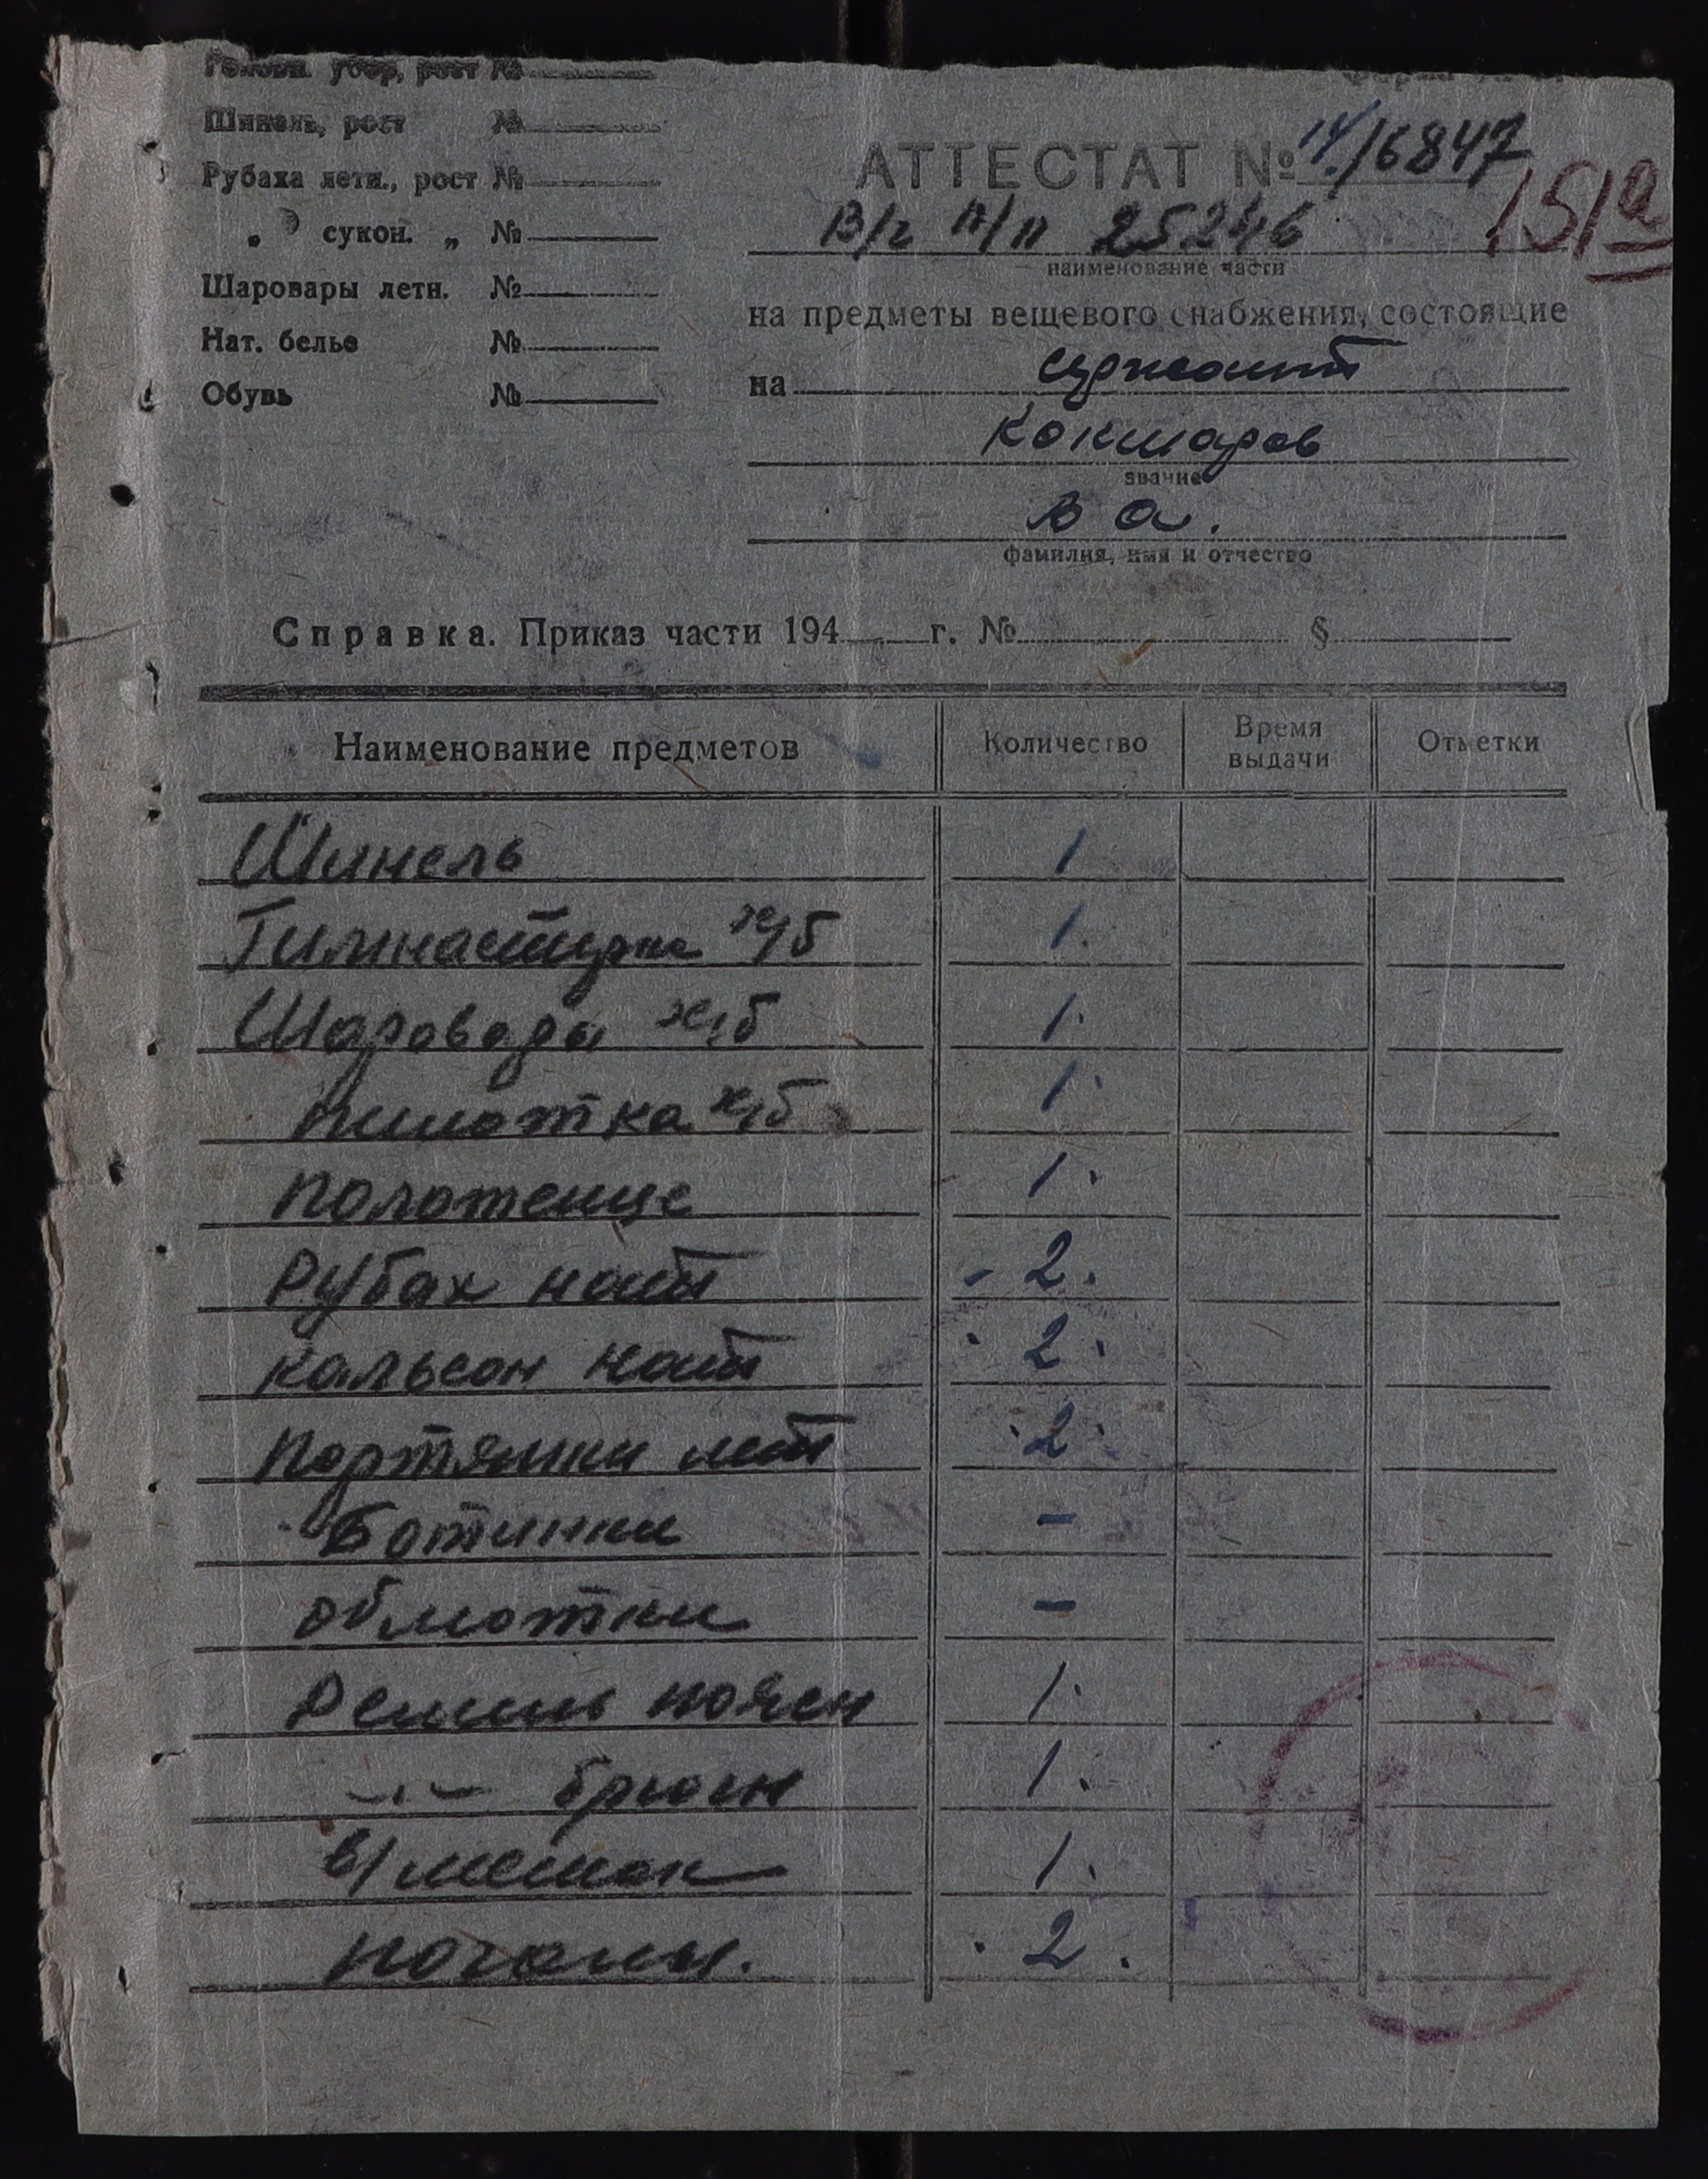 Головн. убор, рост №
Шинель, рост №
Рубаха летн., рост №
„ сукон. „ №
Шаровары летн. №
Нат. белье №
Обувь №
АТТЕСТАТ № 14/6847
151а
В/ч п/п 25246
наименование части
на предметы вещевого снабжения, состоящие
на сержант
Кокшаров
звание
В А.
фамилия, имя и отчество
Справка. Приказ части 194 г. № §
Наименование предметов Количество Время выдачи Отметки
Шинель 1
Гимнастерка х/б 1.
Шаровары х/б 1.
пилотка х/б 1.
полотенце 1.
Рубах нат - 2.
кальсон нат 2.
портянки лет 2.
Ботинки -
обмотки -
Ремень поясн 1.
-"- брючн 1.
в/мешок 1.
погоны. 2.